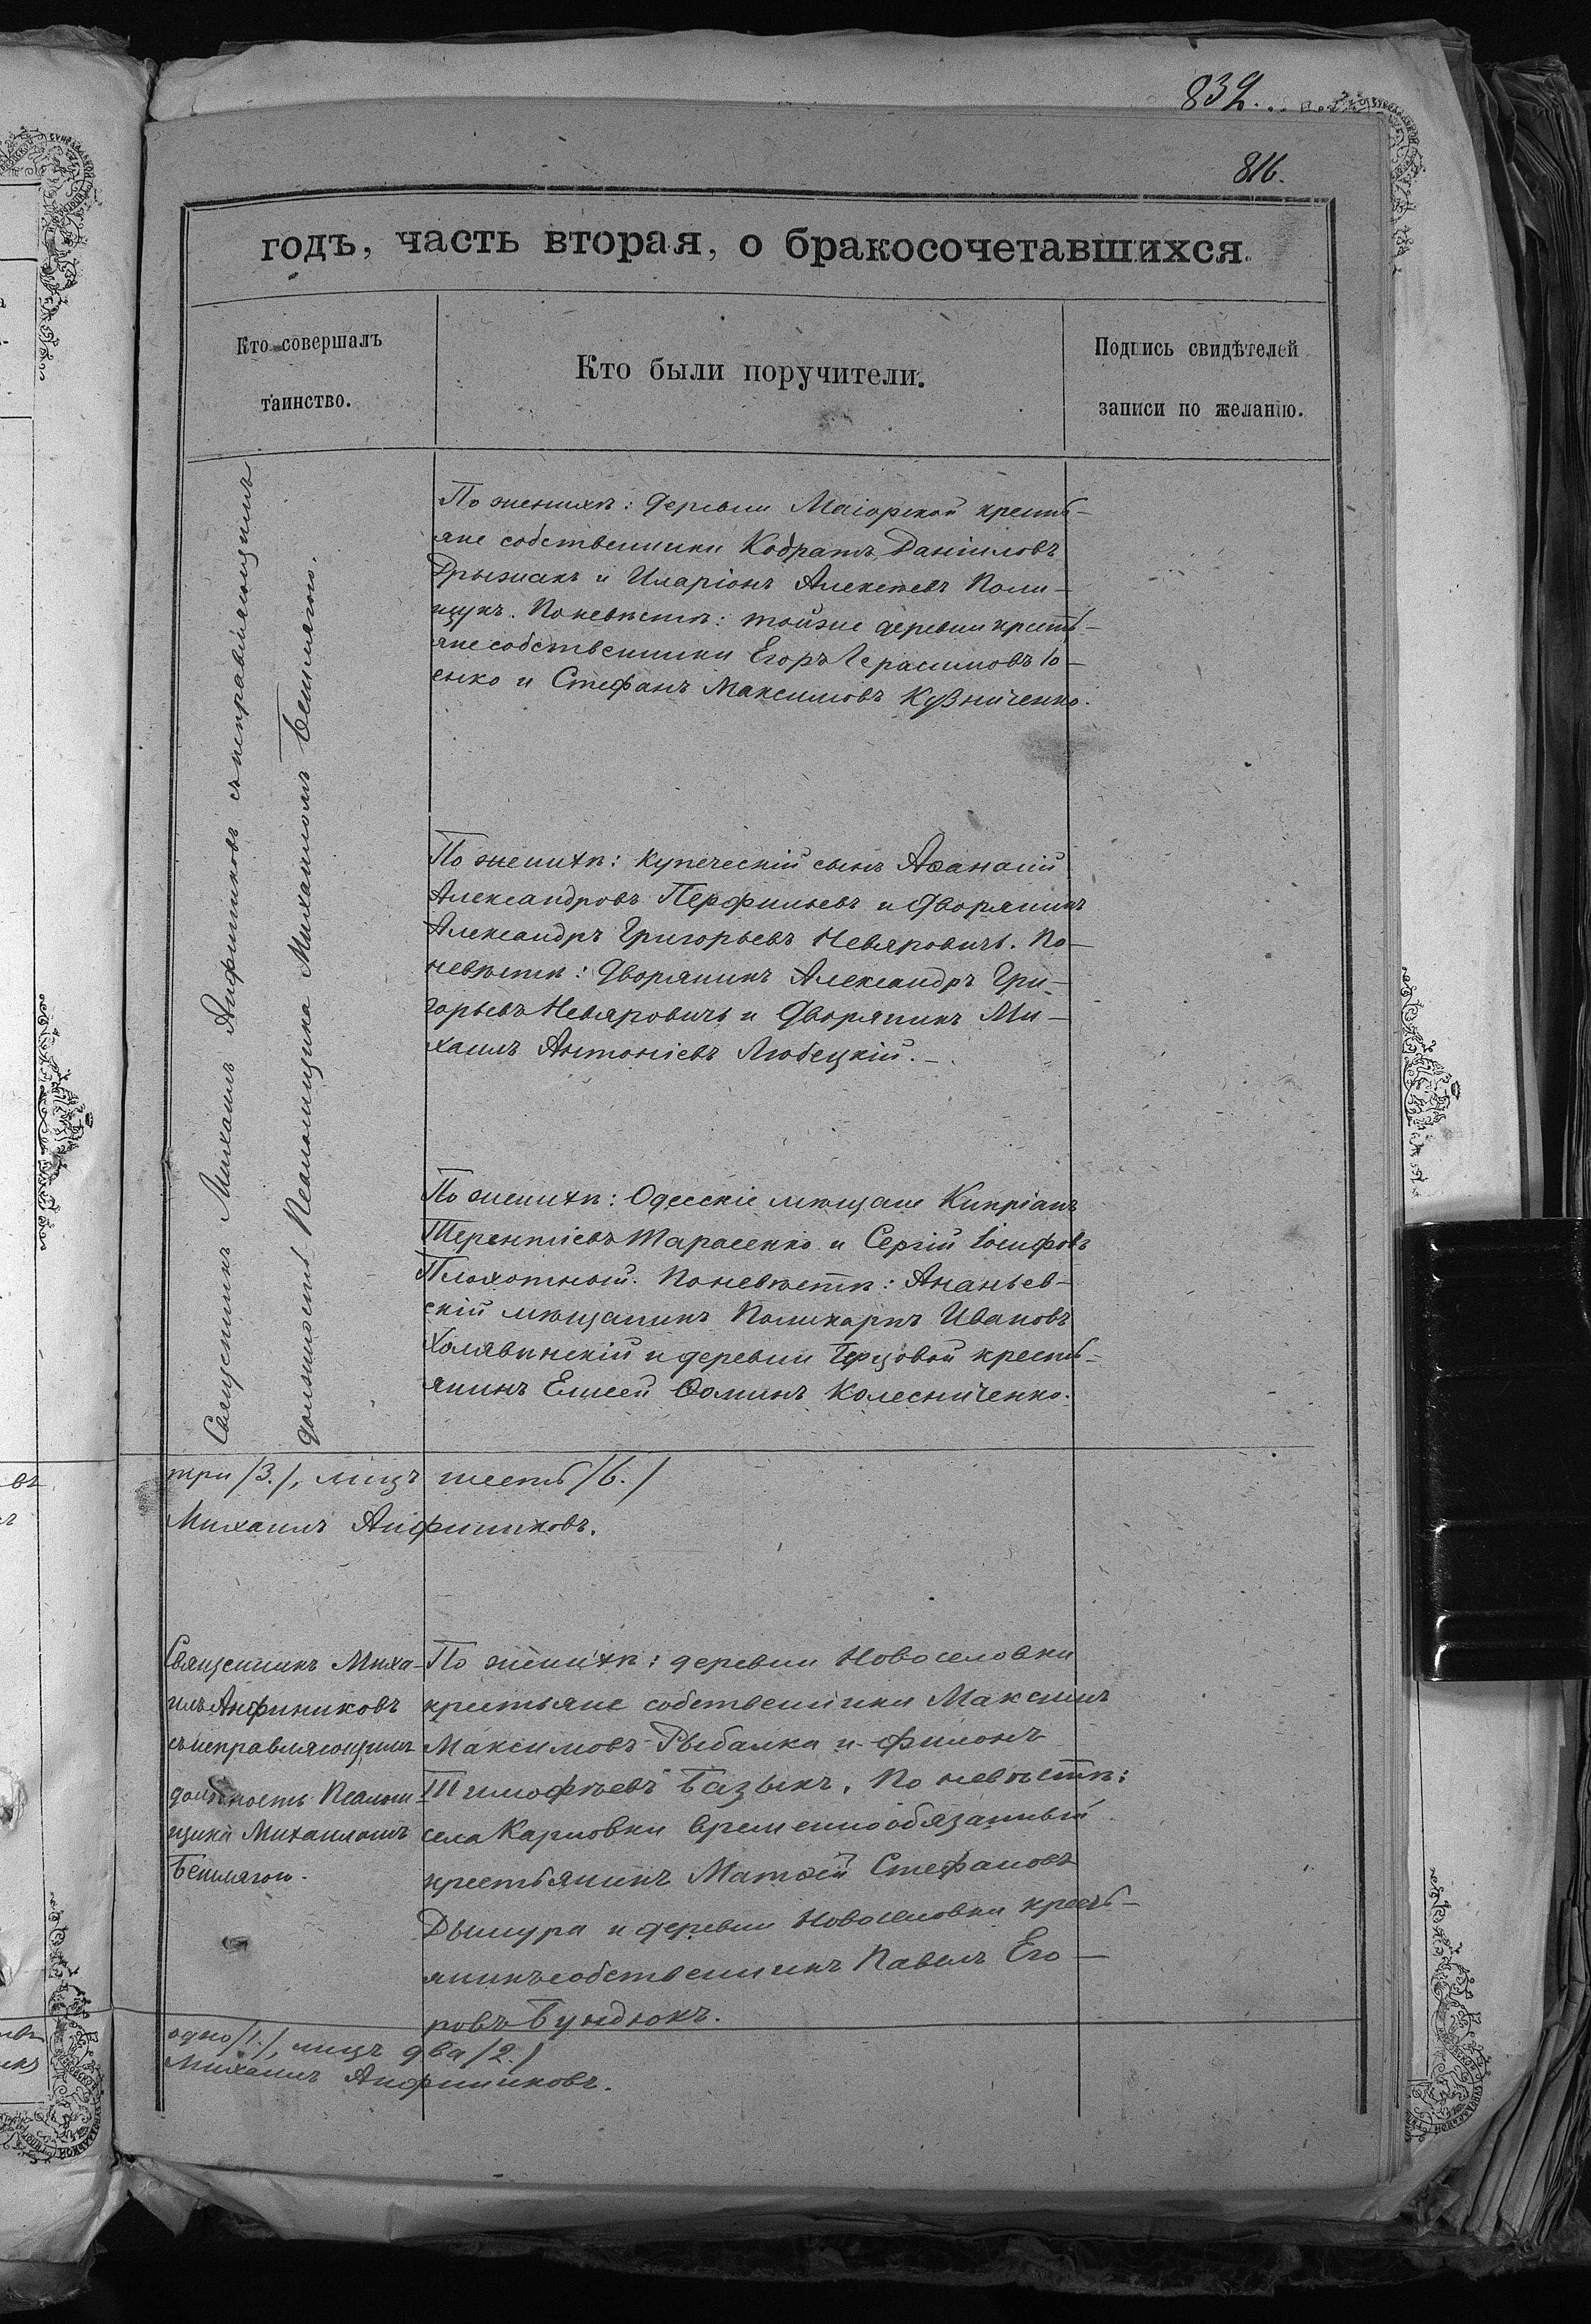 832.
816.
годъ, часть вторая, о бракосочетавшихся.
Кто совершалъ
таинство.
Кто были поручители.
Подпись свидѣтелей
записи по желанію.
Священникъ Михаилъ Анфиниковъ съ исправляющимъ
должность Псаломщика Михаиломъ Бешлягою.
По женихѣ: деревни Маіорской кресть-
яне собственники Кодратъ Даніиловъ
Дрызжакъ и Иларіонъ Алексѣевъ Поли-
щукъ. По невѣстѣ: тойже деревни кресть-
яне собственники Егоръ Герасимовъ Ю-
енко и Стефанъ Максимовъ Кузниченко.
По женихѣ: купеческій сынъ Аѳанасій
Александровъ Перфильевъ и дворянинъ
Александръ Григорьевъ Невяровичъ. По
невѣстѣ: дворянинъ Александръ Гри-
горьевъ Невяровичъ и дворянинъ Ми-
хаилъ Антоніевъ Любецкій.-
По женихѣ: Одесскіе мѣщане Кипріанъ
Терентіевъ Тарасенко и Сергій Іосифовъ
Плохотной. По невѣстѣ: Ананьев-
скій мѣщанинъ Поликарпъ Ивановъ
Холявинскій и деревни Черцовой кресть-
янинъ Елисей Ѳоминъ Колесниченко.
три /3./, лицъ шесть /6./
Михаилъ Анфиниковъ.
Священникъ Миха-
илъ Анфиниковъ
съ исправляющимъ
должность Псалом-
щика Михаиломъ
Бешлягою.
По женихѣ: деревни Новоселовки
крестьяне собственники Максимъ
Максимовъ Рыбалка и Филонъ
Тимофѣевъ Базыкъ. По невѣстѣ:
села Карловки временнообязанный
крестьянинъ Матѳей Стефановъ
Дышура и деревни Новоселовки кресть-
янинъ собственникъ Павелъ Его-
ровъ Бундюкъ.
одно /1./, лицъ два /2./
Михаилъ Анфиниковъ.